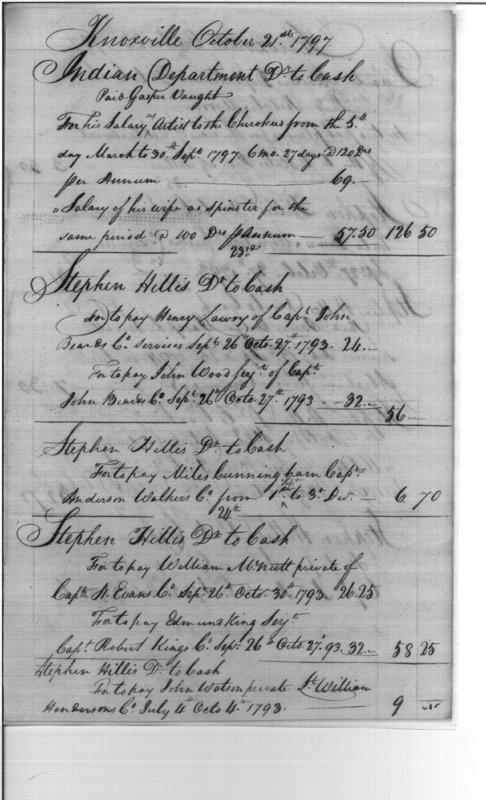 Knoxville October 21.st 1797
Indian Department Dr to Cash
Paid Gasper Vaught
For his Salary as Artist to the Cherokees from the 5.th
day March to 30.th Sept. 1797. 6 mo. 27 days @ 120 Drs
per Annum 69.
" Salary of his wife as spinster for the
same period @ 100 Drs P Annum 57.50 126 50
23.d
Stephen Hillis Dr to Cash
For to pay Henry Lawry of Capt. John
Beards Co. Services Sept. 26 Octo. 27.th 1793. 24
For to pay John Wood Serjt. of Capt.
John Beards Co. Sept. 26.th Octo. 27.th 1793 32
56
Stephen Hillis Dr to Cash
For to pay Miles Cunningham Capt.
Anderson Walkers Co. from 1st to 3.d Dec. 6 70
24.th
Stephen Hillis Dr to Cash
For to pay William McNutt private of
Capt. N. Evans Co. Sept. 26.th Octo. 30.th 1793. 26.25
For to pay Edmund King Serjt.
Capt. Robert Kings Co. Sept. 26th Octo. 27.th 93. 32 58 25
Stephen Hillis Dr to Cash
For to pay John Watson private Lt. William
Hendersons Co. July 4th Octo 4.th 1793. 9